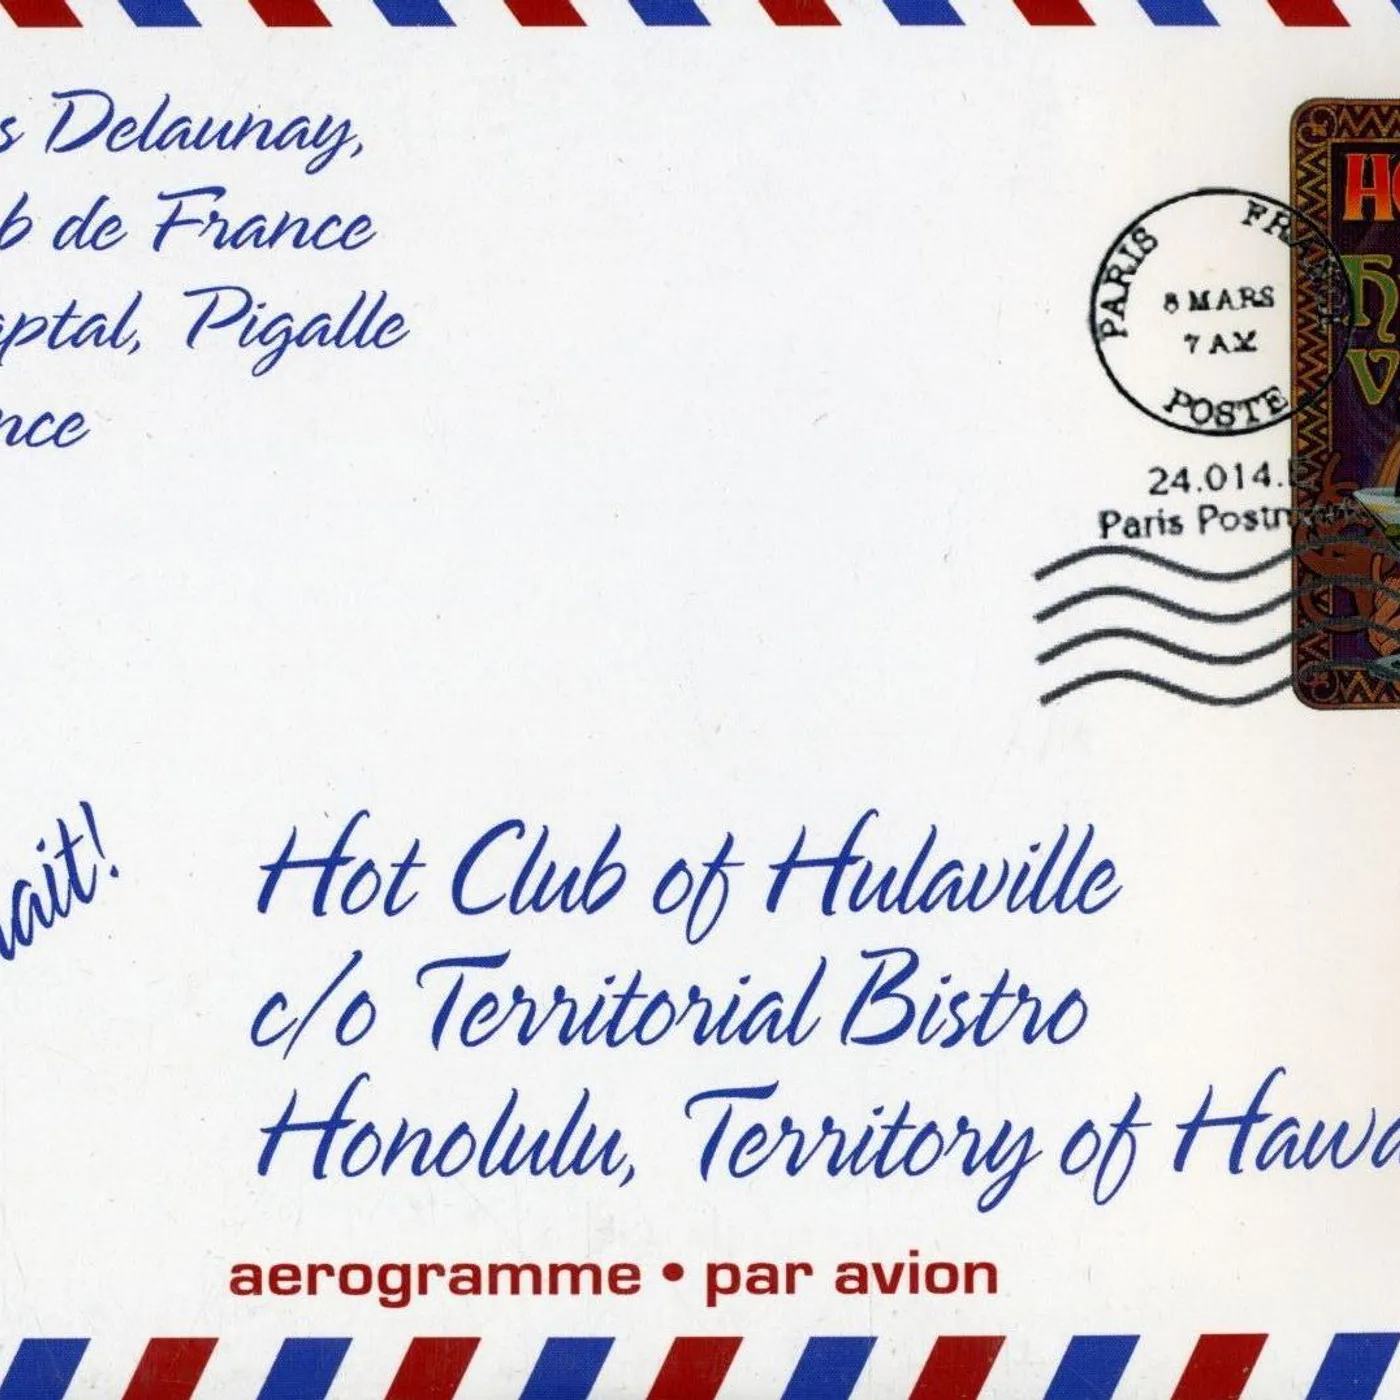 s Delaunay,
b de France
aptal, Pigalle
nce
PARIS FRANCE
8 MARS
7 AM
POSTE
24.014.E
Paris
ait!
Hot Club of Hulaville
c/o Territorial Bistro
Honolulu, Territory of Hawa
aerogramme • par avion